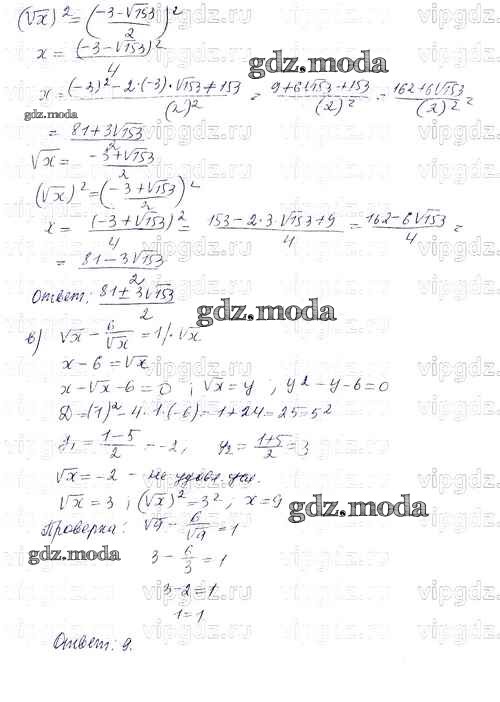 (√x)² = ((-3-√153)/2)²
x = (-3-√153)²/4
x = ((-3)²-2·(-3)·√153+153)/(2)² = (9+6√153+153)/(2)² = (162+6√153)/(2)² =
gdz.moda
= (81+3√153)/2
√x = (-3+√153)/2
(√x)² = ((-3+√153)/2)²
x = (-3+√153)²/4 = (153-2·3·√153+9)/4 = (162-6√153)/4 =
= (81-3√153)/2
Ответ: (81±3√153)/2
gdz.moda
в) √x - 6/√x = 1 |·√x
x-6=√x
x-√x-6=0 ; √x=y ; y²-y-6=0
D=(1)²-4·1·(-6)=1+24=25=5²
y₁ = (1-5)/2 = -2, y₂ = (1+5)/2 = 3
√x = -2 - не удовл. ур.
√x = 3 ; (√x)² = 3² ; x = 9
gdz.moda
Проверка: √9 - 6/√9 = 1
gdz.moda
3 - 6/3 = 1
3-2=1
1=1
Ответ: 9.